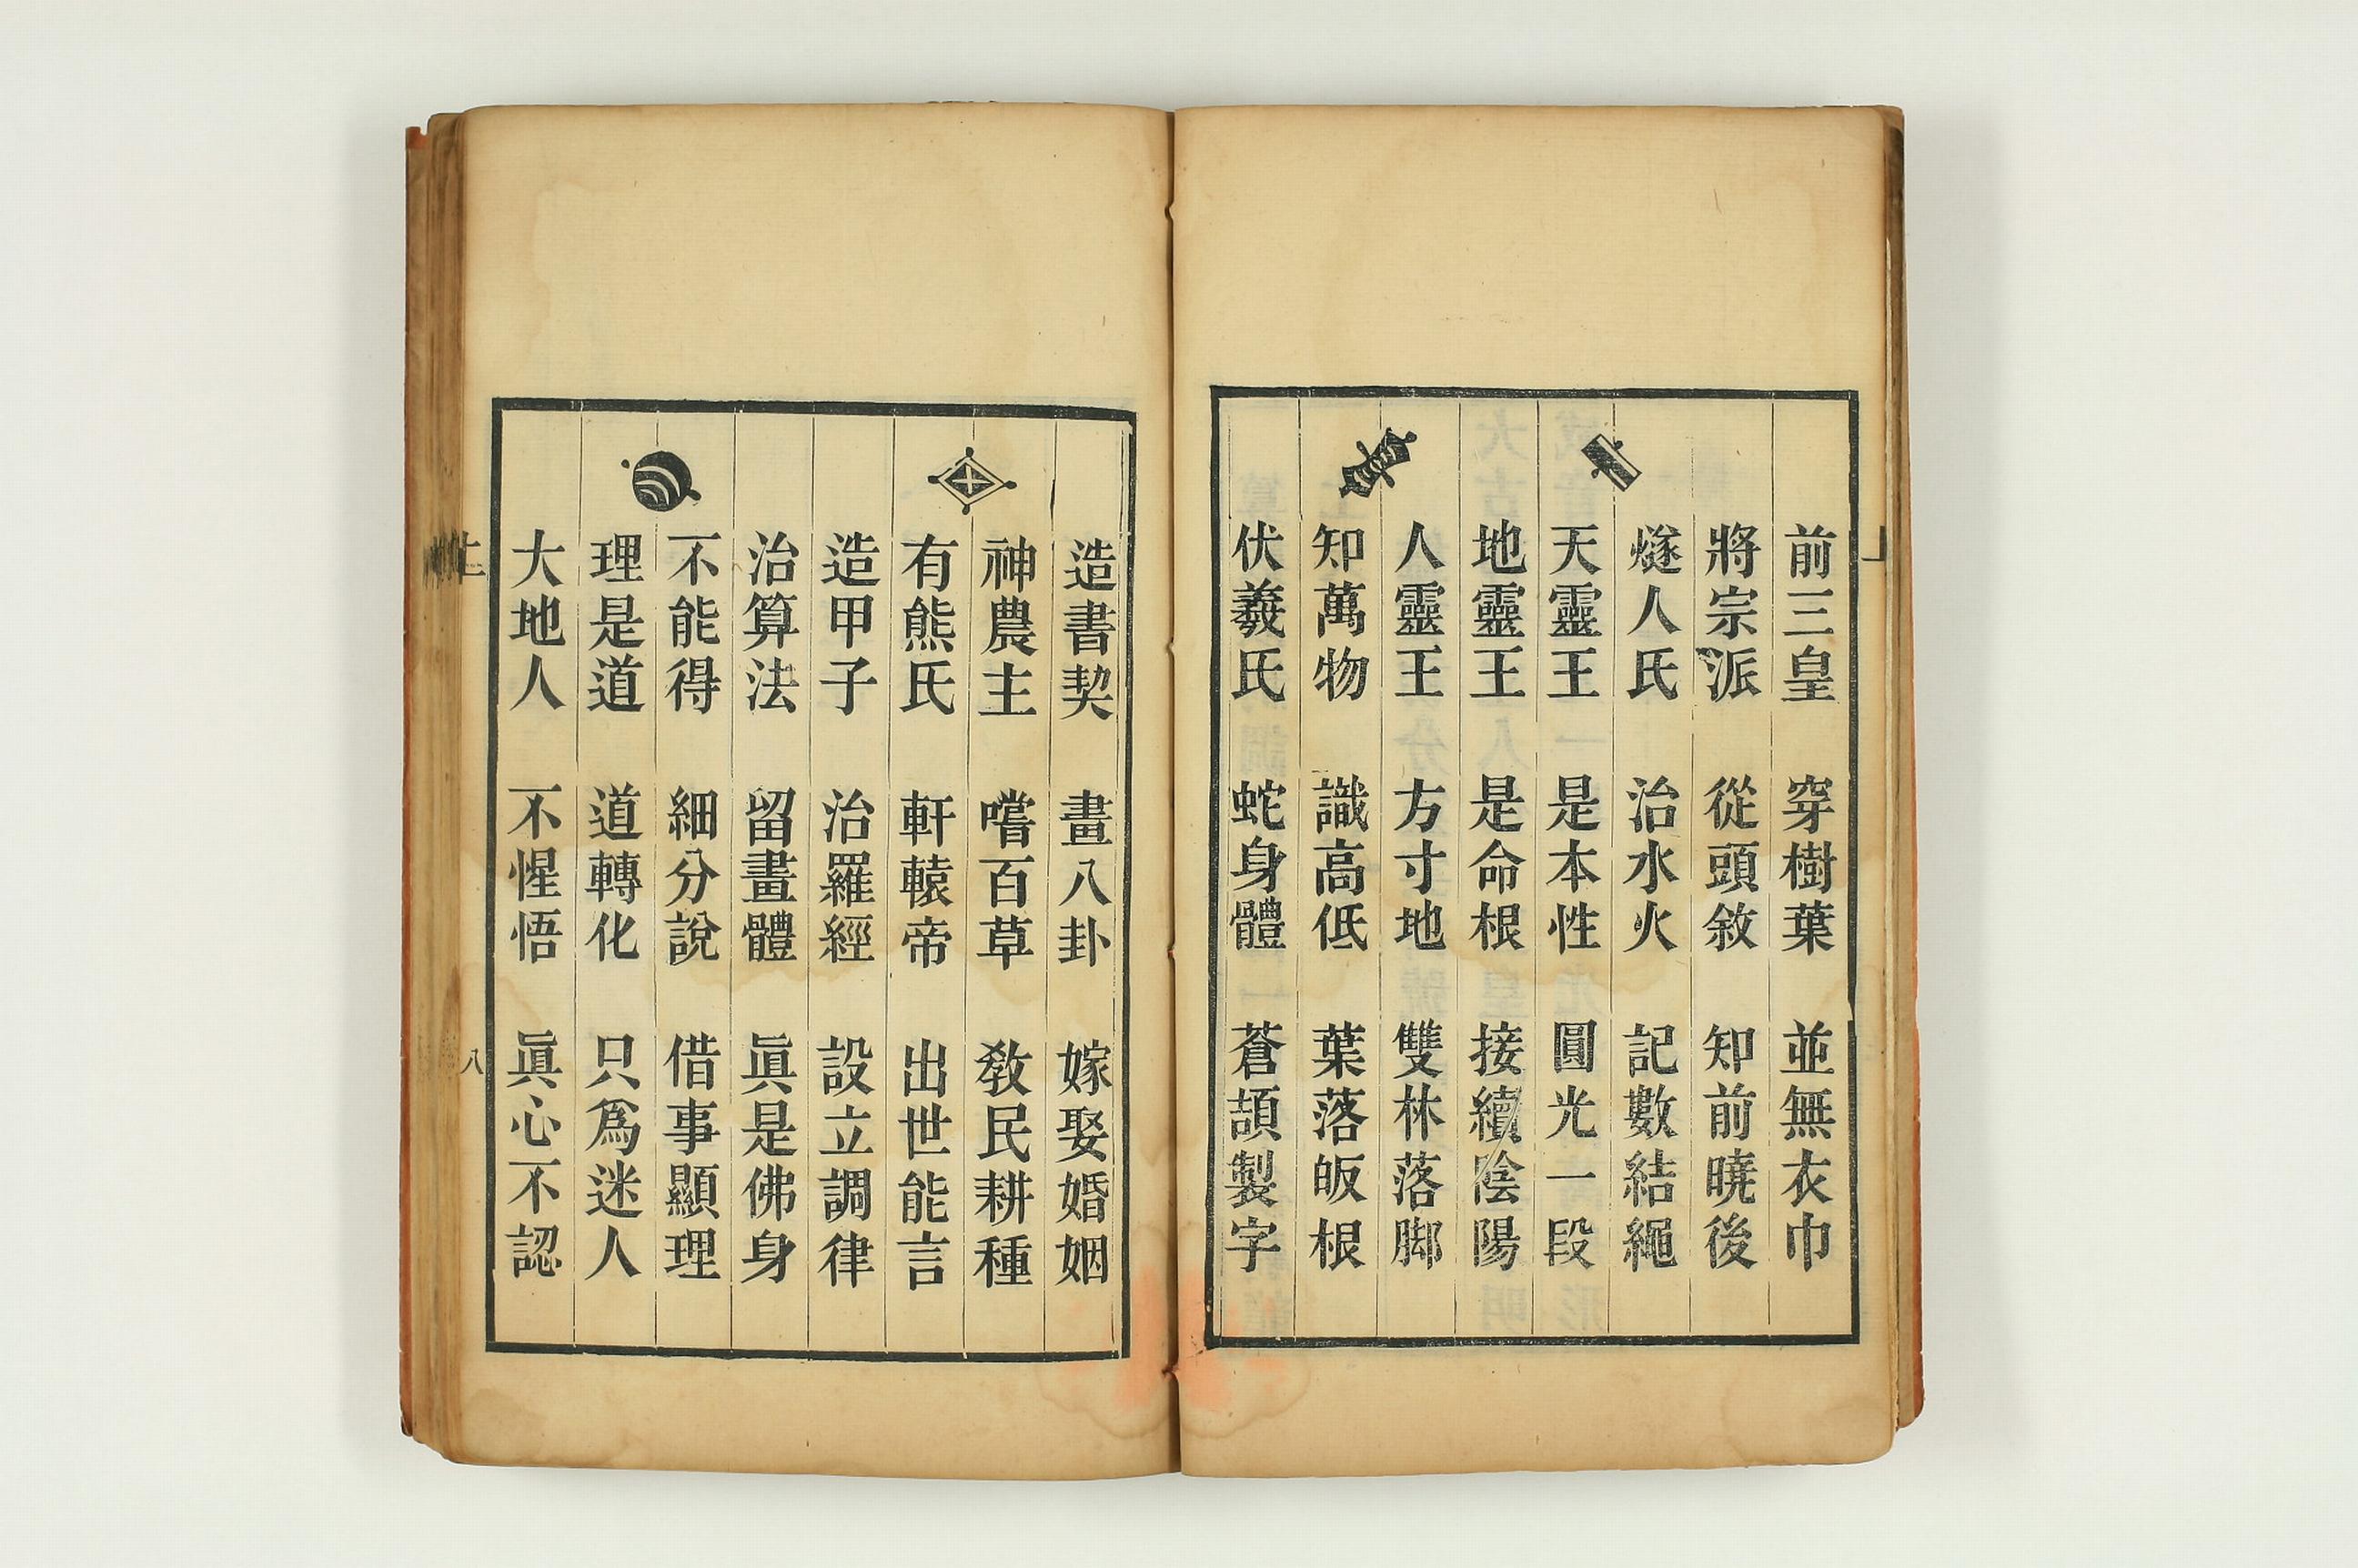 前三皇 穿樹葉 並無衣巾
將宗派 從頭敘 知前曉後
燧人氏 治水火 記數結繩
天靈王 是本性 圓光一段
地靈王 是命根 接續陰陽
人靈王 方寸地 雙林落脚
知萬物 識高低 葉落皈根
伏羲氏 蛇身體 蒼頡製字
造書契 畫八卦 嫁娶婚姻
神農主 嚐百草 敎民耕種
有熊氏 軒轅帝 出世能言
造甲子 治羅經 設立調律
治算法 留畫體 眞是佛身
不能得 細分說 借事顯理
理是道 道轉化 只爲迷人
大地人 不惺悟 眞心不認
八